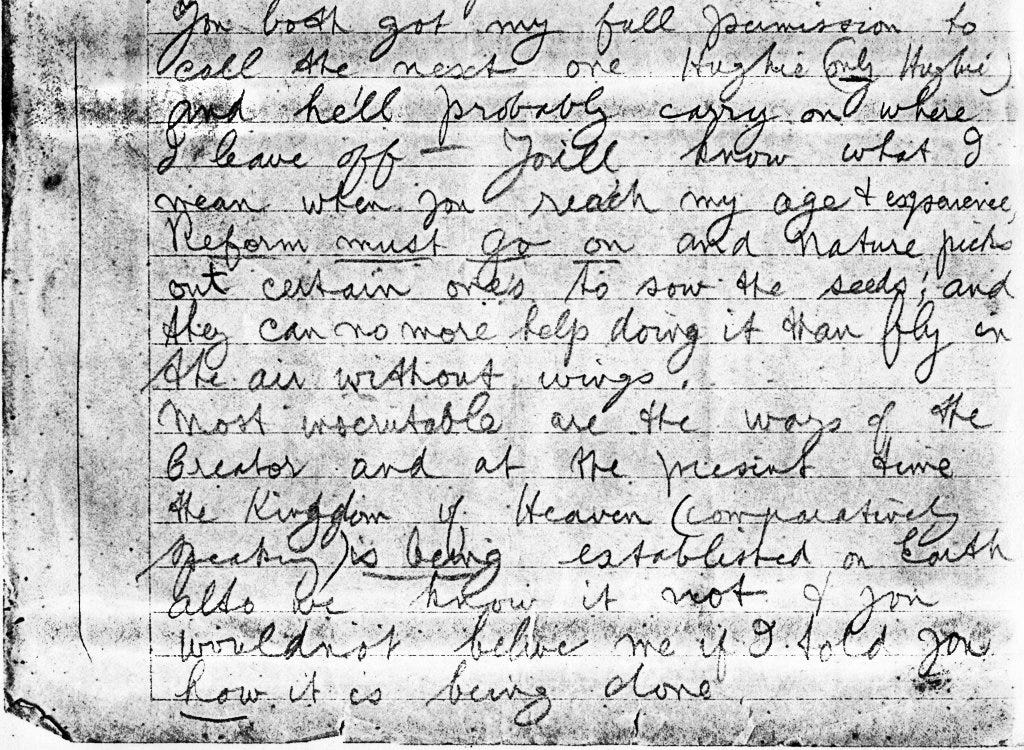 You both got my full permission to
call the next one Hughie (only Hughie)
and he'll probably carry on where
I leave off - You'll know what I
mean when you reach my age & experience,
Reform must go on and Nature picks
out certain ones to sow the seeds; and
they can no more help doing it than fly in
the air without wings.
Most inscrutable are the ways of the
Creator and at the present time
the Kingdom of Heaven (comparatively
speaking) is being established on Earth
altho we know it not & you
wouldnot belive me if I told you
how it is being done.